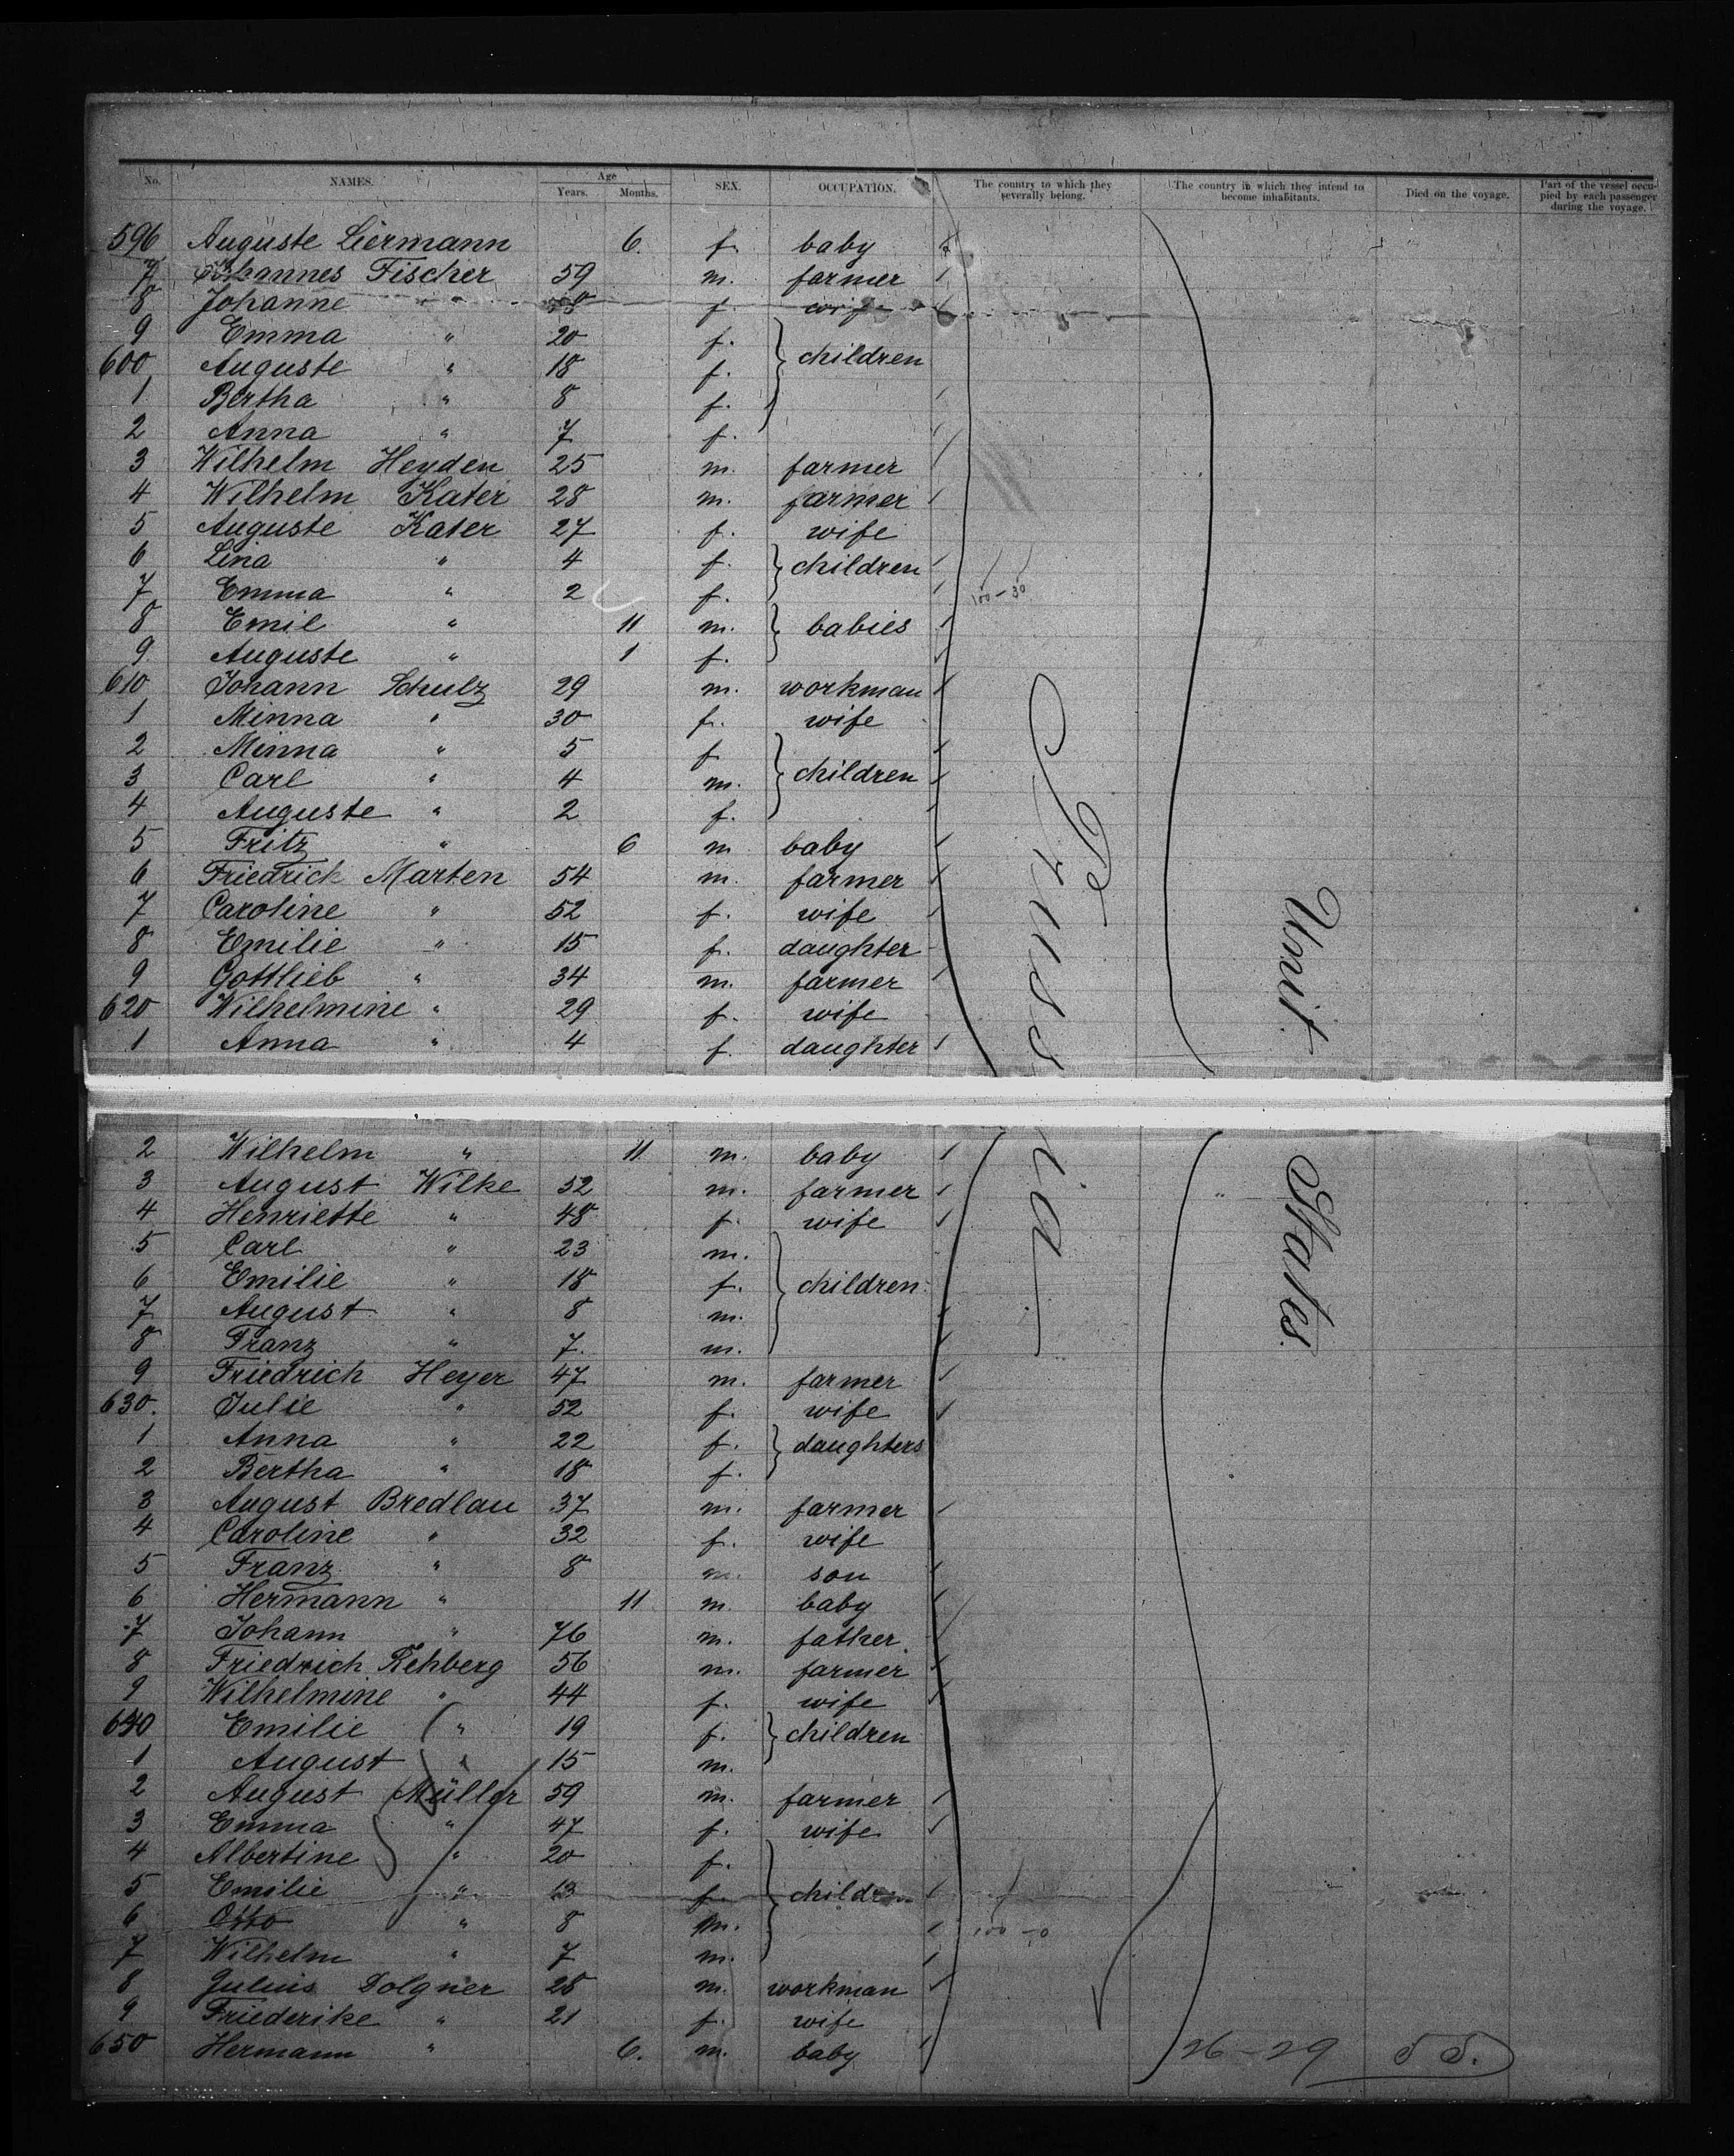 No. NAMES. Age Years. Months. SEX. OCCUPATION. The country to which they severally belong. The country in which they intend to become inhabitants. Died on the voyage. Part of the vessel occupied by each passenger during the voyage.
596 Auguste Liermann 6. f. baby
7 Johannes Fischer 59 m. farmer
8 Johanne " f. wife
9 Emma " 20 f. } children
600 Auguste " 18 f.
1 Bertha " 8 f.
2 Anna " 7 f.
3 Wilhelm Heyden 25 m. farmer
4 Wilhelm Kater 28 m. farmer
5 Auguste Kater 27 f. wife
6 Lina " 4 f. } children
7 Emma " 2 f. 100-30
8 Emil " 11 m. } babies
9 Auguste " 1 f.
610 Johann Schulz 29 m. workman
1 Minna " 30 f. wife
2 Minna " 5 f. } children
3 Carl " 4 m.
4 Auguste " 2 f.
5 Fritz " 6 m baby
6 Friedrich Marten 54 m. farmer
7 Caroline " 52 f. wife
8 Emilie " 15 f. daughter
9 Gottlieb " 34 m. farmer
620 Wilhelmine " 29 f. wife
1 Anna " 4 f. daughter
Prussia
Unit. States.
2 Wilhelm " 11 m. baby
3 August Wilke 52 m. farmer
4 Henriette " 48 f. wife
5 Carl " 23 m. } children
6 Emilie " 18 f.
7 August " 8 m.
8 Franz " 7. m.
9 Friedrich Heyer 47 m. farmer
630. Julie " 52 f. wife
1 Anna " 22 f. } daughters
2 Bertha " 18 f.
3 August Bredlau 37 m. farmer
4 Caroline " 32 f. wife
5 Franz " 8 m. son
6 Hermann " 11 m. baby
7 Johann " 76 m. father
8 Friedrich Rehberg 56 m. farmer
9 Wilhelmine " 44 f. wife
640 Emilie " 19 f. } children
1 August " 15 m.
2 August Müller 59 m. farmer
3 Emma " 47 f. wife
4 Albertine " 20 f. } children
5 Emilie " 13 f.
6 Otto " 8 m. 100-0
7 Wilhelm " 7 m.
8 Julius Dolgner 28 m. workman
9 Friederike " 21 f. wife
650 Hermann " 6. m. baby
26-29